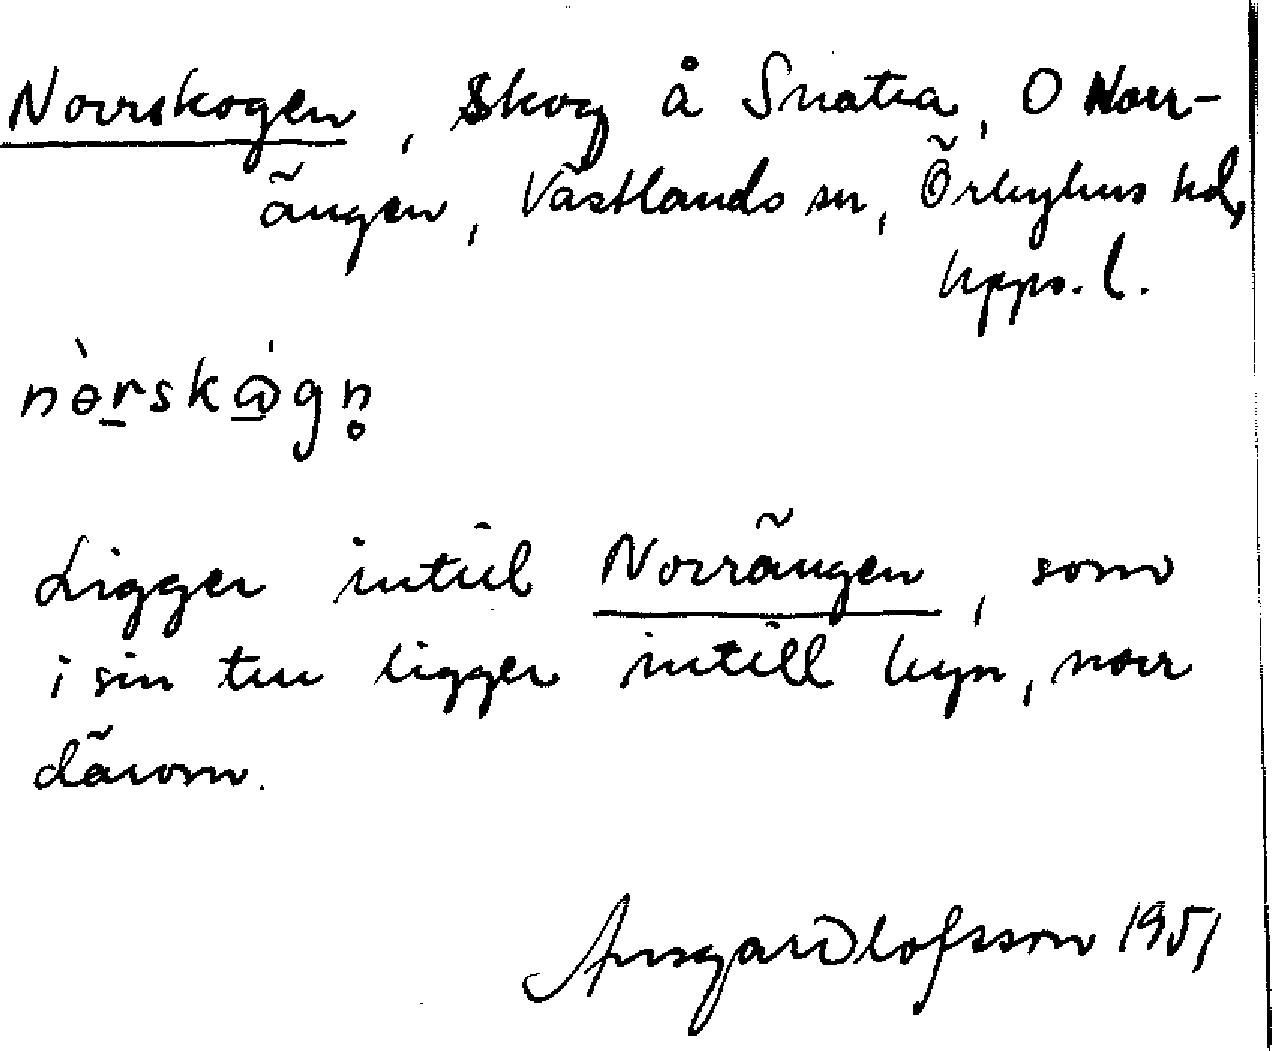 Norrskogen, Skog å Snatra, O Norr-
ängen, Västlands sn, Örbyhus hd,
Upps. l.
nòrskógn̥
Ligger intill Norrängen, som
i sin tur ligger intill byn, norr
därom.
Ansgar Olofsson 1951